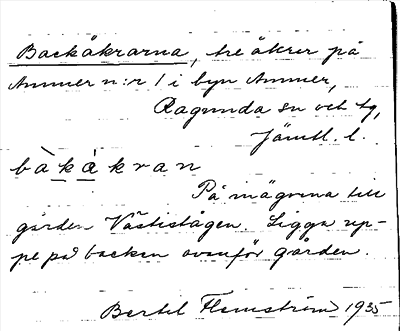 Backåkrarna, tre åkrar på
Ammer n:r 1 i byn Ammer,
Ragunda sn och tg,
Jämtl. l.
bàkàkran
På mägorna till
gården Västistågen. Ligga up-
pe på backen ovanför gården.
Bertel Flemström 1935